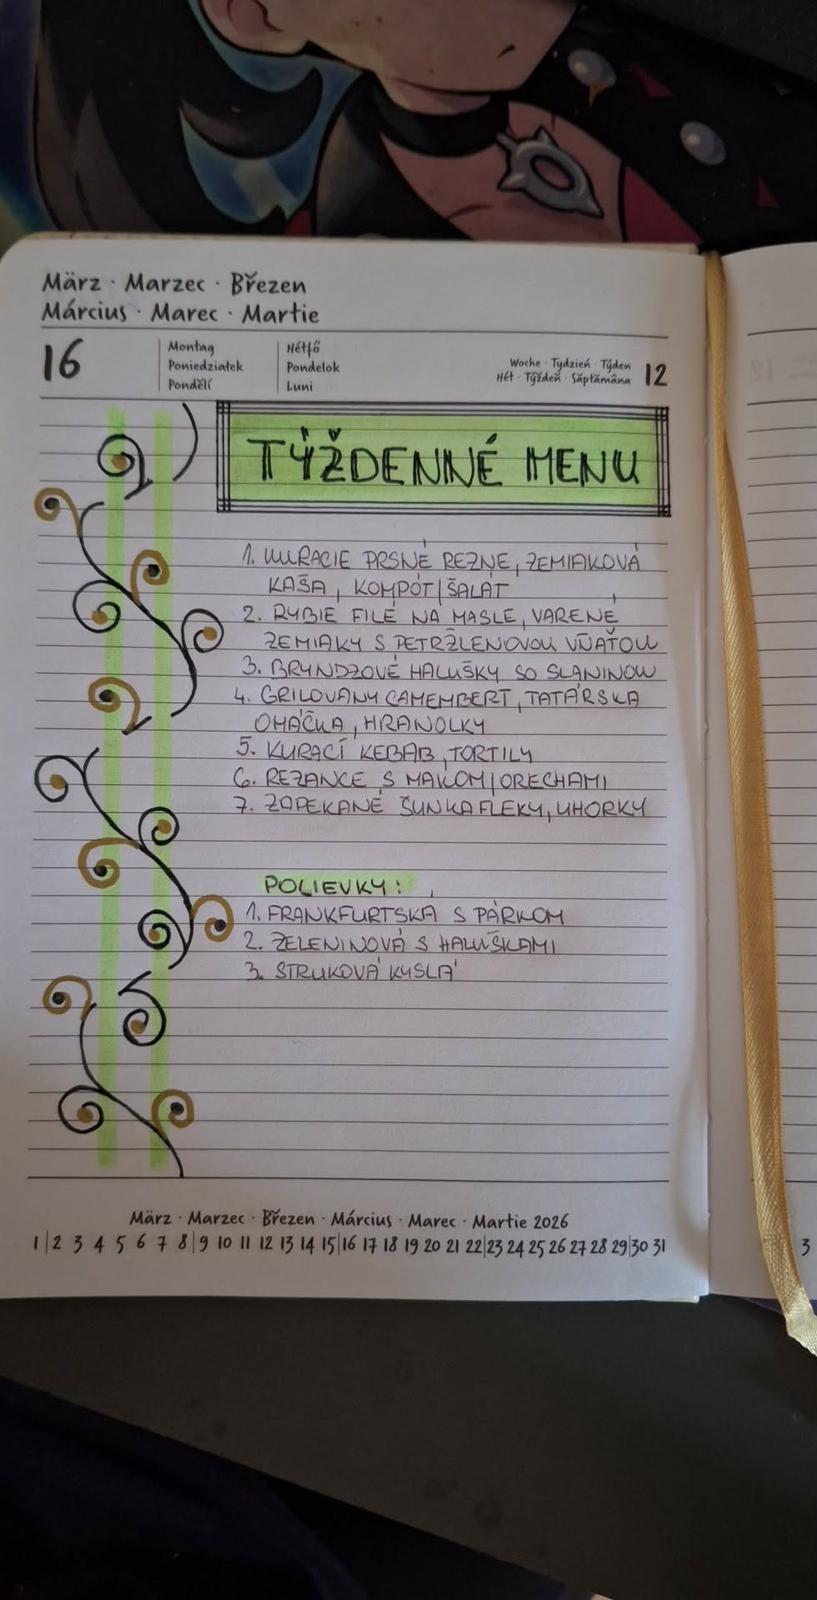 März · Marzec · Březen
Március · Marec · Martie
16
Montag
Poniedziałek
Pondělí
Hétfő
Pondelok
Luni
Woche · Tydzień · Týden
Hét · Týždeň · Săptămâna
12
TÝŽDENNÉ MENU
1. KURACIE PRSNÉ REZNE, ZEMIAKOVÁ
KAŠA, KOMPÓT/ŠALÁT
2. RYBIE FILÉ NA MASLE, VARENÉ
ZEMIAKY S PETRŽLENOVOU VŇAŤOU
3. BRYNDZOVÉ HALUŠKY SO SLANINOU
4. GRILOVANÝ CAMEMBERT, TATÁRSKA
OMÁČKA, HRANOLKY
5. KURACÍ KEBAB, TORTILY
6. REZANCE S MAKOM/ORECHAMI
7. ZAPEKANÉ ŠUNKAFLEKY, UHORKY
POLIEVKY:
1. FRANKFURTSKÁ S PÁRKOM
2. ZELENINOVÁ S HALUŠKAMI
3. STRUKOVÁ KYSLÁ
März · Marzec · Březen · Március · Marec · Martie 2026
1|2 3 4 5 6 7 8|9 10 11 12 13 14 15|16 17 18 19 20 21 22|23 24 25 26 27 28 29|30 31
3